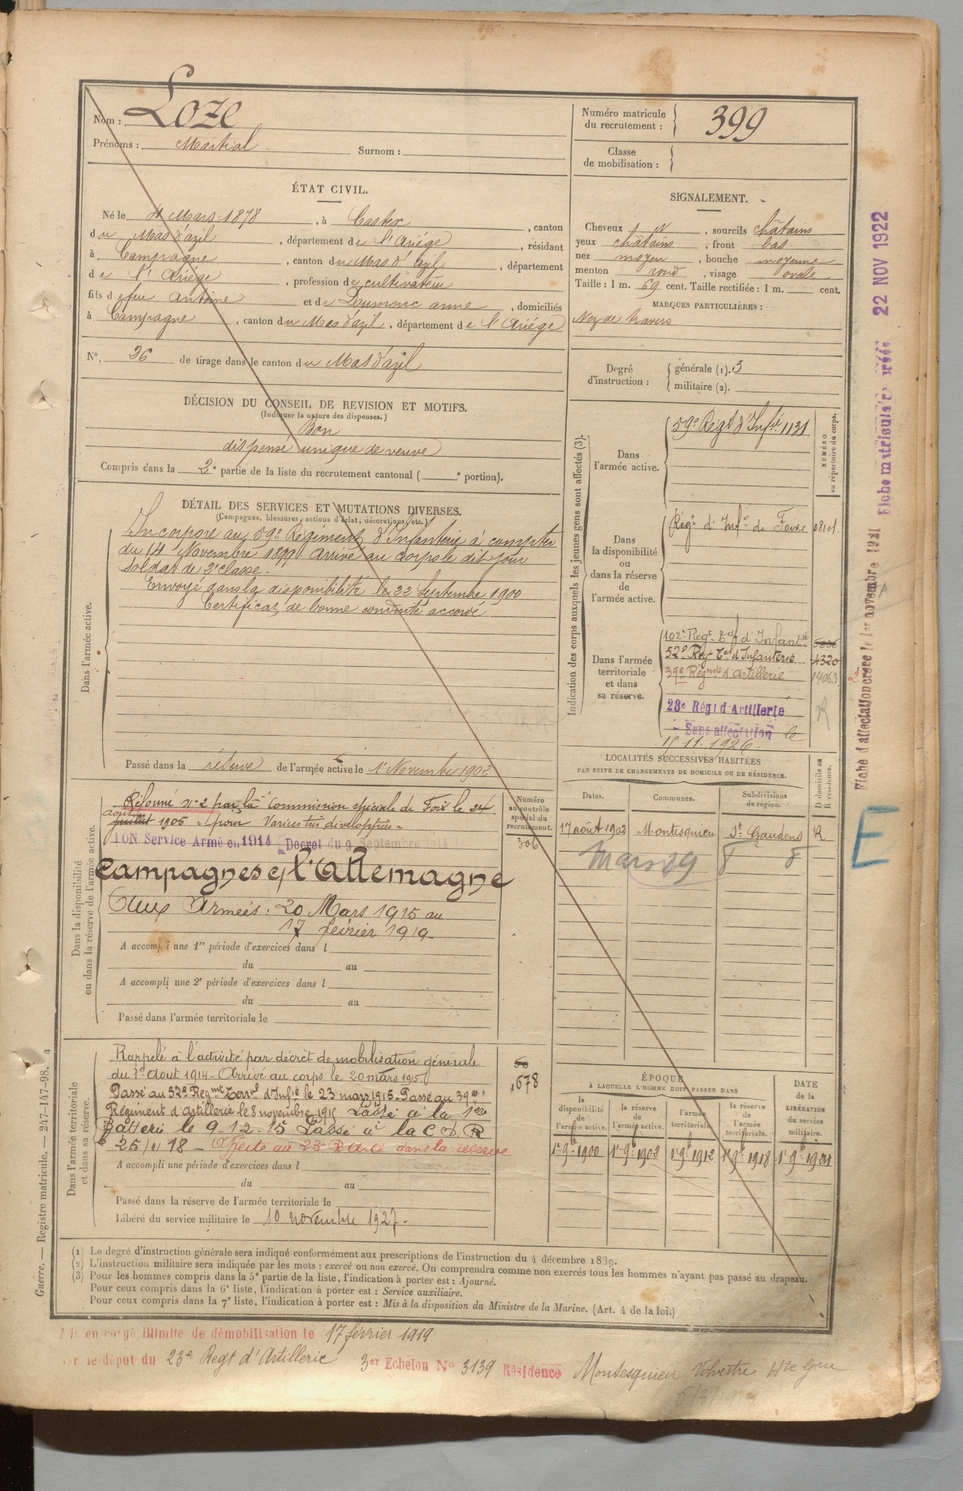 Nom : Loze
Prénoms : Martial Surnom :
Numéro matricule du recrutement : 399
Classe de mobilisation :
ÉTAT CIVIL.
Né le 4 Mars 1878, à Castex, canton
du Mas d'azil, département de l'Ariége, résidant
à Campagne, canton du Mas d'azil, département
de l'Ariège, profession de cultivateur
fils de feu Antoine et de Loumenc anne, domiciliés
à Campagne, canton du Mas d'azil, département de l'Ariége
N° 26 de tirage dans le canton du Mas d'azil
DÉCISION DU CONSEIL DE REVISION ET MOTIFS.
(Indiquer la nature des dispenses.)
Bon
dispensé unique de veuve
Compris dans la 2e partie de la liste du recrutement cantonal ( e portion).
SIGNALEMENT.
Cheveux , sourcils châtains
yeux châtains, front bas
nez moyen, bouche moyenne
menton rond, visage ovale
Taille : 1 m. 69 cent. Taille rectifiée : 1 m. cent.
MARQUES PARTICULIÈRES :
Nez de travers
Degré d'instruction : générale (1). 3
militaire (2).
DÉTAIL DES SERVICES ET MUTATIONS DIVERSES.
(Campagnes, blessures, actions d'éclat, décorations, etc.)
Dans l'armée active.
Incorporé au 59e Régiment d'Infanterie à compter
du 14 Novembre 1899. Arrivé au corps le dit jour
soldat de 2e classe.
Envoyé dans la disponibilité le 22 Septembre 1900
Certificat de bonne conduite accordé.
Passé dans la réserve de l'armée active le 1er Novembre 1902
Indication des corps auxquels les jeunes gens sont affectés (3).
NUMÉRO au répertoire du corps.
Dans l'armée active.
59e Regt d'Infie 1131
Dans la disponibilité ou dans la réserve de l'armée active.
Régt d'Infie de Foix
Dans l'armée territoriale et dans sa réserve.
102e Regt Tal d'Infanterie
52e Regt Tal d'Infanterie 4320
39e Régmt d'Artillerie 14063
23e Régt d'Artillerie
Sans affectation le
15.11.1926
LOCALITÉS SUCCESSIVES HABITÉES
PAR SUITE DE CHANGEMENTS DE DOMICILE OU DE RÉSIDENCE.
Dates. Communes. Subdivisions de région. D domicile ou R résidence.
17 août 1902 Montesquieu St Gaudens R
Dans la disponibilité ou dans la réserve de l'armée active.
Numéro au contrôle spécial du recrutement.
306
Réformé n° 2 par la Commission spéciale de Foix le 24
août juillet 1905 pour varices très développées.
BON Service Armé en 1914 Décret du 9 Septembre
Campagnes c/ l'Allemagne
Aux Armées : 20 Mars 1915 au
17 février 1919
A accompli une 1re période d'exercices dans l
du au
A accompli une 2e période d'exercices dans l
du au
Passé dans l'armée territoriale le
Dans l'armée territoriale et dans sa réserve.
Rappelé à l'activité par décret de mobilisation générale
du 1er Aout 1914 - Arrivé au corps le 20 mars 1915
Passé au 52e Regmt Terral d'Infie le 23 mars 1915. Passé au 39e
Régiment d'artillerie le 8 novembre 1915 Passé à la 1ere
Batterie le 9-12-15 Passé à la C.D.R
le 25/11/18 - Affecté au 23 R.A.C. dans la réserve
1678
A accompli une période d'exercices dans l
du au
Passé dans la réserve de l'armée territoriale le
Libéré du service militaire le 10 novembre 1927.
ÉPOQUE
À LAQUELLE L'HOMME DOIT PASSER DANS
la disponibilité de l'armée active. la réserve de l'armée active. l'armée territoriale. la réserve de l'armée territoriale.
DATE DE LA LIBÉRATION DU SERVICE militaire.
1er 9bre 1900 1er 9bre 1902 1er 9bre 1912 1er 9bre 1918 1er 9bre 1924
(1) Le degré d'instruction générale sera indiqué conformément aux prescriptions de l'instruction du 4 décembre 1889.
(2) L'instruction militaire sera indiquée par les mots : exercé ou non exercé. On comprendra comme non exercés tous les hommes n'ayant pas passé au drapeau.
(3) Pour les hommes compris dans la 5e partie de la liste, l'indication à porter est : Ajourné.
Pour ceux compris dans la 6e liste, l'indication à porter est : Service auxiliaire.
Pour ceux compris dans la 7e liste, l'indication à porter est : Mis à la disposition du Ministre de la Marine. (Art. 4 de la loi.)
en congé illimité de démobilisation le 17 février 1919
dépôt du 23e Regt d'Artillerie 3er Echelon N° 3139 Résidence Montesquieu Volvestre Hte Gne
Guerre. — Registre matricule. — 247-147-98.
Fiche matriculaire créée 22 NOV 1922
Fiche d'affectation créée le 1er novembre 1921
E